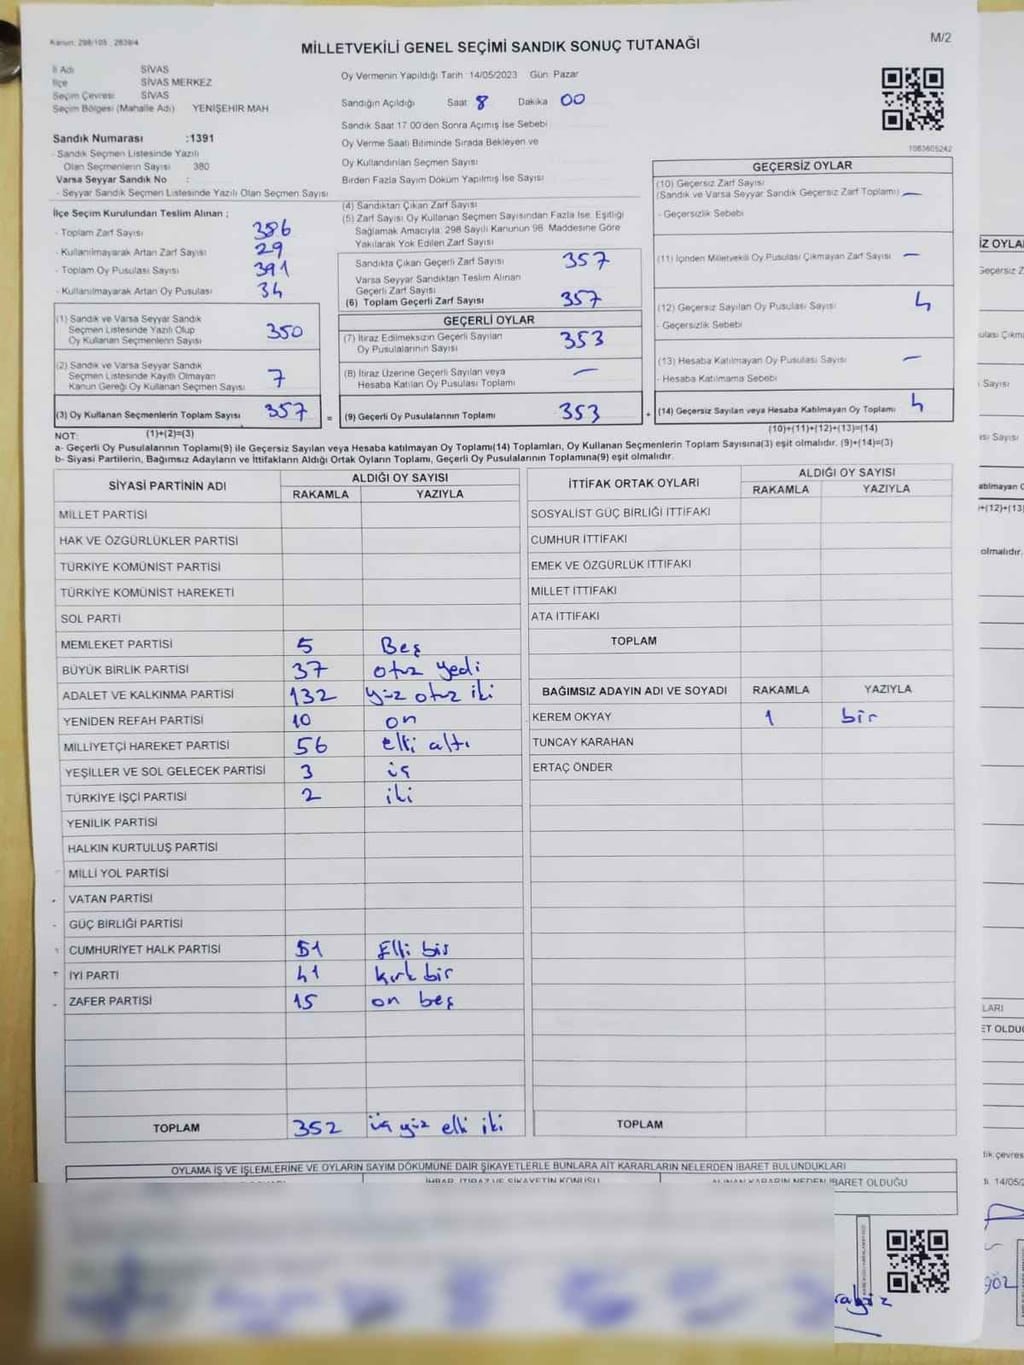 Kanun: 298/105 , 2839/4
MİLLETVEKİLİ GENEL SEÇİMİ SANDIK SONUÇ TUTANAĞI
M/2
İl Adı SİVAS
İlçe SİVAS MERKEZ
Seçim Çevresi SİVAS
Seçim Bölgesi (Mahalle Adı) YENİŞEHİR MAH
Sandık Numarası :1391
- Sandık Seçmen Listesinde Yazılı
Olan Seçmenlerin Sayısı 380
Varsa Seyyar Sandık No :
- Seyyar Sandık Seçmen Listesinde Yazılı Olan Seçmen Sayısı
Oy Vermenin Yapıldığı Tarih 14/05/2023 Gün Pazar
Sandığın Açıldığı Saat 8 Dakika 00
Sandık Saat 17 00'den Sonra Açımış İse Sebebi
Oy Verme Saati Bitiminde Sırada Bekleyen ve
Oy Kullandırılan Seçmen Sayısı
Birden Fazla Sayım Döküm Yapılmış İse Sayısı
1063605242
İlçe Seçim Kurulundan Teslim Alınan ;
- Toplam Zarf Sayısı 386
- Kullanılmayarak Artan Zarf Sayısı 29
- Toplam Oy Pusulası Sayısı 391
- Kullanılmayarak Artan Oy Pusulası 34
(1) Sandık ve Varsa Seyyar Sandık
Seçmen Listesinde Yazılı Olup
Oy Kullanan Seçmenlerin Sayısı 350
(2) Sandık ve Varsa Seyyar Sandık
Seçmen Listesinde Kayıtlı Olmayan
Kanun Gereği Oy Kullanan Seçmen Sayısı 7
(3) Oy Kullanan Seçmenlerin Toplam Sayısı 357 =
(4) Sandıktan Çıkan Zarf Sayısı
(5) Zarf Sayısı Oy Kullanan Seçmen Sayısından Fazla İse, Eşitliği
Sağlamak Amacıyla, 298 Sayılı Kanunun 98. Maddesine Göre
Yakılarak Yok Edilen Zarf Sayısı
Sandıkta Çıkan Geçerli Zarf Sayısı 357
Varsa Seyyar Sandıktan Teslim Alınan
Geçerli Zarf Sayısı
(6) Toplam Geçerli Zarf Sayısı 357
GEÇERLİ OYLAR
(7) İtiraz Edilmeksizin Geçerli Sayılan
Oy Pusulalarının Sayısı 353
(8) İtiraz Üzerine Geçerli Sayılan veya
Hesaba Katılan Oy Pusulası Toplamı —
(9) Geçerli Oy Pusulalarının Toplamı 353 +
GEÇERSİZ OYLAR
(10) Geçersiz Zarf Sayısı
(Sandık ve Varsa Seyyar Sandık Geçersiz Zarf Toplamı) —
- Geçersizlik Sebebi
(11) İçinden Milletvekili Oy Pusulası Çıkmayan Zarf Sayısı —
(12) Geçersiz Sayılan Oy Pusulası Sayısı 4
- Geçersizlik Sebebi
(13) Hesaba Katılmayan Oy Pusulası Sayısı —
- Hesaba Katılmama Sebebi
(14) Geçersiz Sayılan veya Hesaba Katılmayan Oy Toplamı 4
NOT: (1)+(2)=(3) (10)+(11)+(12)+(13)=(14)
a- Geçerli Oy Pusulalarının Toplamı(9) ile Geçersiz Sayılan veya Hesaba katılmayan Oy Toplamı(14) Toplamları, Oy Kullanan Seçmenlerin Toplam Sayısına(3) eşit olmalıdır. (9)+(14)=(3)
b- Siyasi Partilerin, Bağımsız Adayların ve İttifakların Aldığı Ortak Oyların Toplamı, Geçerli Oy Pusulalarının Toplamına(9) eşit olmalıdır.
SİYASİ PARTİNİN ADI ALDIĞI OY SAYISI
RAKAMLA YAZIYLA
MİLLET PARTİSİ
HAK VE ÖZGÜRLÜKLER PARTİSİ
TÜRKİYE KOMÜNİST PARTİSİ
TÜRKİYE KOMÜNİST HAREKETİ
SOL PARTİ
MEMLEKET PARTİSİ 5 Beş
BÜYÜK BİRLİK PARTİSİ 37 otuz yedi
ADALET VE KALKINMA PARTİSİ 132 yüz otuz iki
YENİDEN REFAH PARTİSİ 10 on
MİLLİYETÇİ HAREKET PARTİSİ 56 elli altı
YEŞİLLER VE SOL GELECEK PARTİSİ 3 üç
TÜRKİYE İŞÇİ PARTİSİ 2 iki
YENİLİK PARTİSİ
HALKIN KURTULUŞ PARTİSİ
MİLLİ YOL PARTİSİ
VATAN PARTİSİ
GÜÇ BİRLİĞİ PARTİSİ
CUMHURİYET HALK PARTİSİ 51 Elli bir
İYİ PARTİ 41 kırk bir
ZAFER PARTİSİ 15 on beş
TOPLAM 352 üç yüz elli iki
İTTİFAK ORTAK OYLARI ALDIĞI OY SAYISI
RAKAMLA YAZIYLA
SOSYALİST GÜÇ BİRLİĞİ İTTİFAKI
CUMHUR İTTİFAKI
EMEK VE ÖZGÜRLÜK İTTİFAKI
MİLLET İTTİFAKI
ATA İTTİFAKI
TOPLAM
BAĞIMSIZ ADAYIN ADI VE SOYADI RAKAMLA YAZIYLA
KEREM OKYAY 1 bir
TUNCAY KARAHAN
ERTAÇ ÖNDER
TOPLAM
OYLAMA İŞ VE İŞLEMLERİNE VE OYLARIN SAYIM DÖKÜMÜNE DAİR ŞİKAYETLERLE BUNLARA AİT KARARLARIN NELERDEN İBARET BULUNDUKLARI
İHBAR, İTİRAZ VE ŞİKAYETİN KONUSU ALINAN KARARIN NEDEN İBARET OLDUĞU